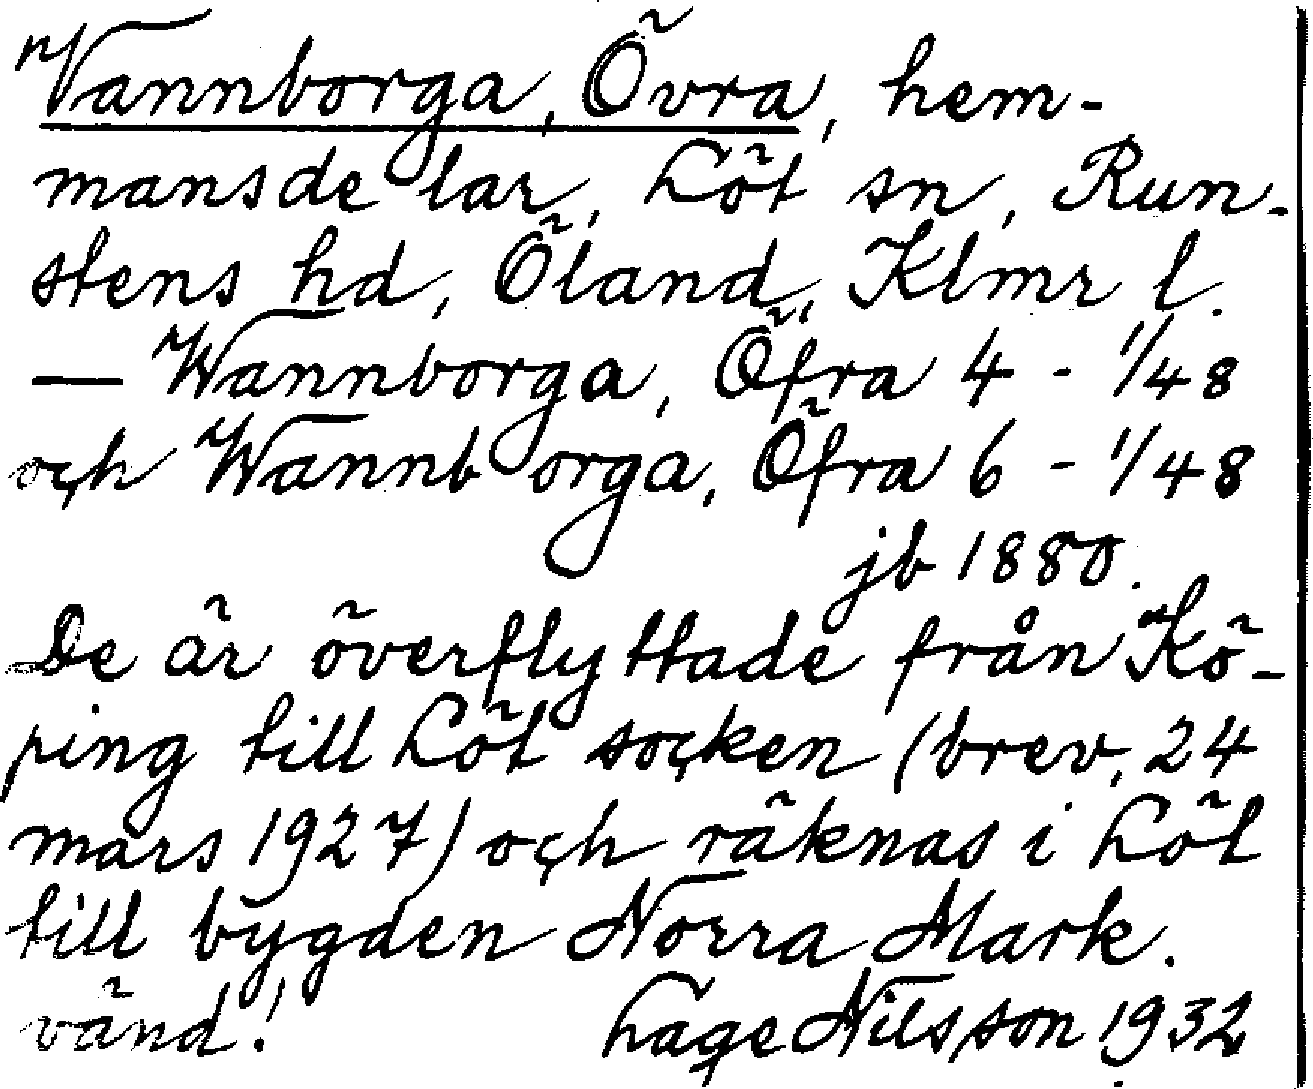 Vannborga, Övra, hem-
mansdelar, Löt sn, Run-
stens hd, Öland, Klmr l.
— Wannborga, Öfra 4 - 1/48
och Wannborga, Öfra 6 - 1/48
jb 1880.
De är överflyttade från Kö-
ping till Löt socken (brev, 24
mars 1927) och räknas i Löt
till bygden Norra Mark.
vänd! Lage Nilsson 1932